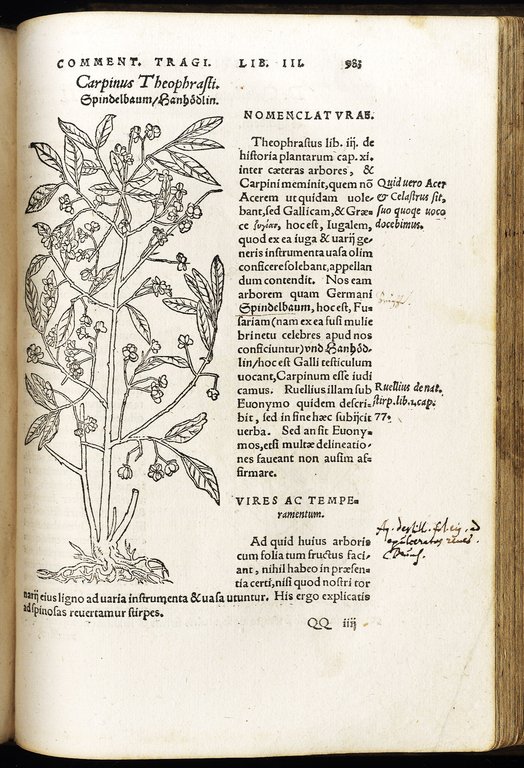 COMMENT. TRAGI. LIB. III. 983
Carpinus Theophrasti.
Spindelbaum/Hanhödlin.
NOMENCLATVRAE.
Theophrastus lib. iij. de
historia plantarum cap. xi.
inter cæteras arbores, &
Carpini meminit, quem nō
Acerem ut quidam uole-
bant, sed Gallicam, & Græ-
ce ζυγίαν, hoc est, Iugalem,
quod ex ea iuga & uarij ge-
neris instrumenta uasa olim
conficere solebant, appellan
dum contendit. Nos eam
arborem quam Germani
Spindelbaum, hoc est, Fu-
sariam (nam ex ea fusi mulie
bri netu celebres apud nos
conficiuntur) vnd Hanhöd-
lin/hoc est Galli testiculum
uocant, Carpinum esse iudi
camus. Ruellius illam sub
Euonymo quidem descri-
bit, sed in fine hæc subijcit
uerba. Sed an sit Euony-
mos, etsi multæ delineatio-
nes faueant non ausim af-
firmare.
Quid uero Acer
& Celastrus sit,
suo quoque uoco
docebimus.
Ruellius de nat.
stirp. lib. 1. cap.
77.
VIRES AC TEMPE-
ramentum.
Ad quid huius arboris
cum folia tum fructus faci
ant, nihil habeo in præsen-
tia certi, nisi quod nostri tor
narij eius ligno ad uaria instrumenta & uasa utuntur. His ergo explicatis
ad spinosas reuertamur stirpes.
QQ iiij